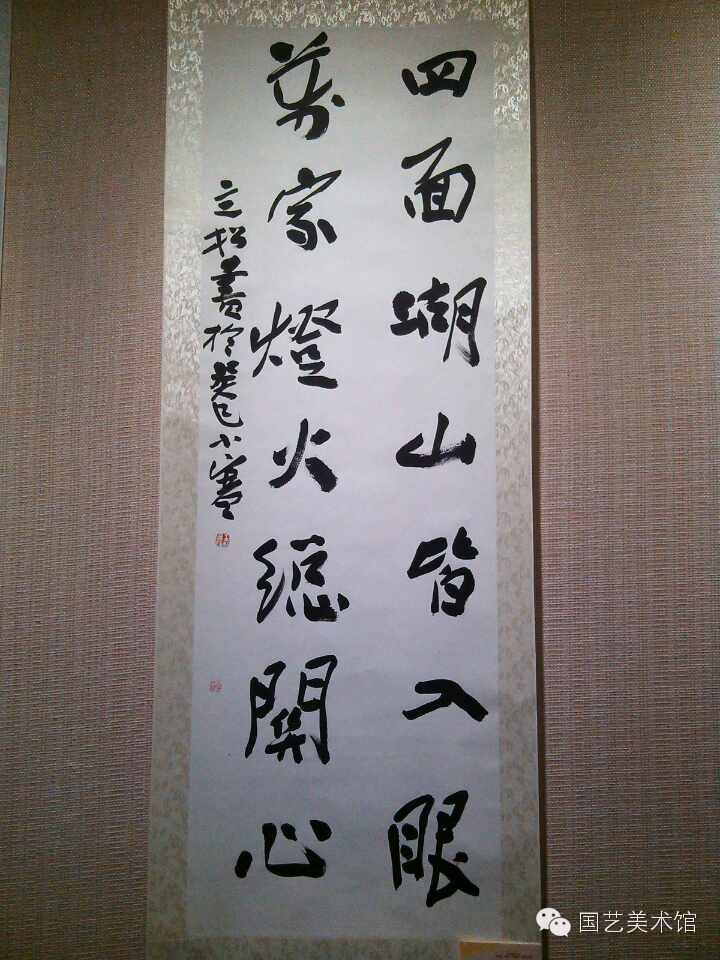 四面湖山皆入眼
萬家燈火總關心
立松書於癸巳小寒
国艺美术馆